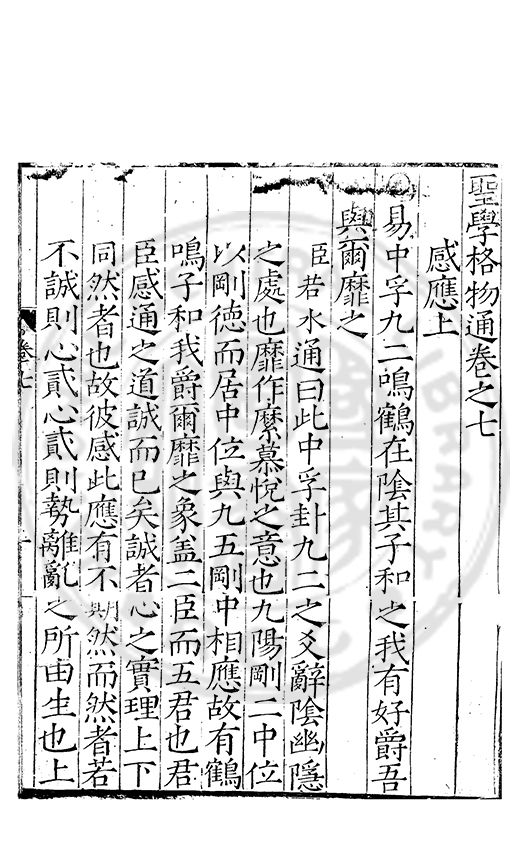 聖學格物通卷之七
感應上
易中孚九二鳴鶴在陰其子和之我有好爵吾
與爾靡之
臣若水通曰此中孚卦九二之爻辭陰幽隱
之處也靡作縻慕悅之意也九陽剛二中位
以剛德而居中位與九五剛中相應故有鶴
鳴子和我爵爾靡之象盖二臣而五君也君
臣感通之道誠而已矣誠者心之實理上下
同然者也故彼感此應有不期然而然者若
不誠則心貳心貳則勢離亂之所由生也上
卷七